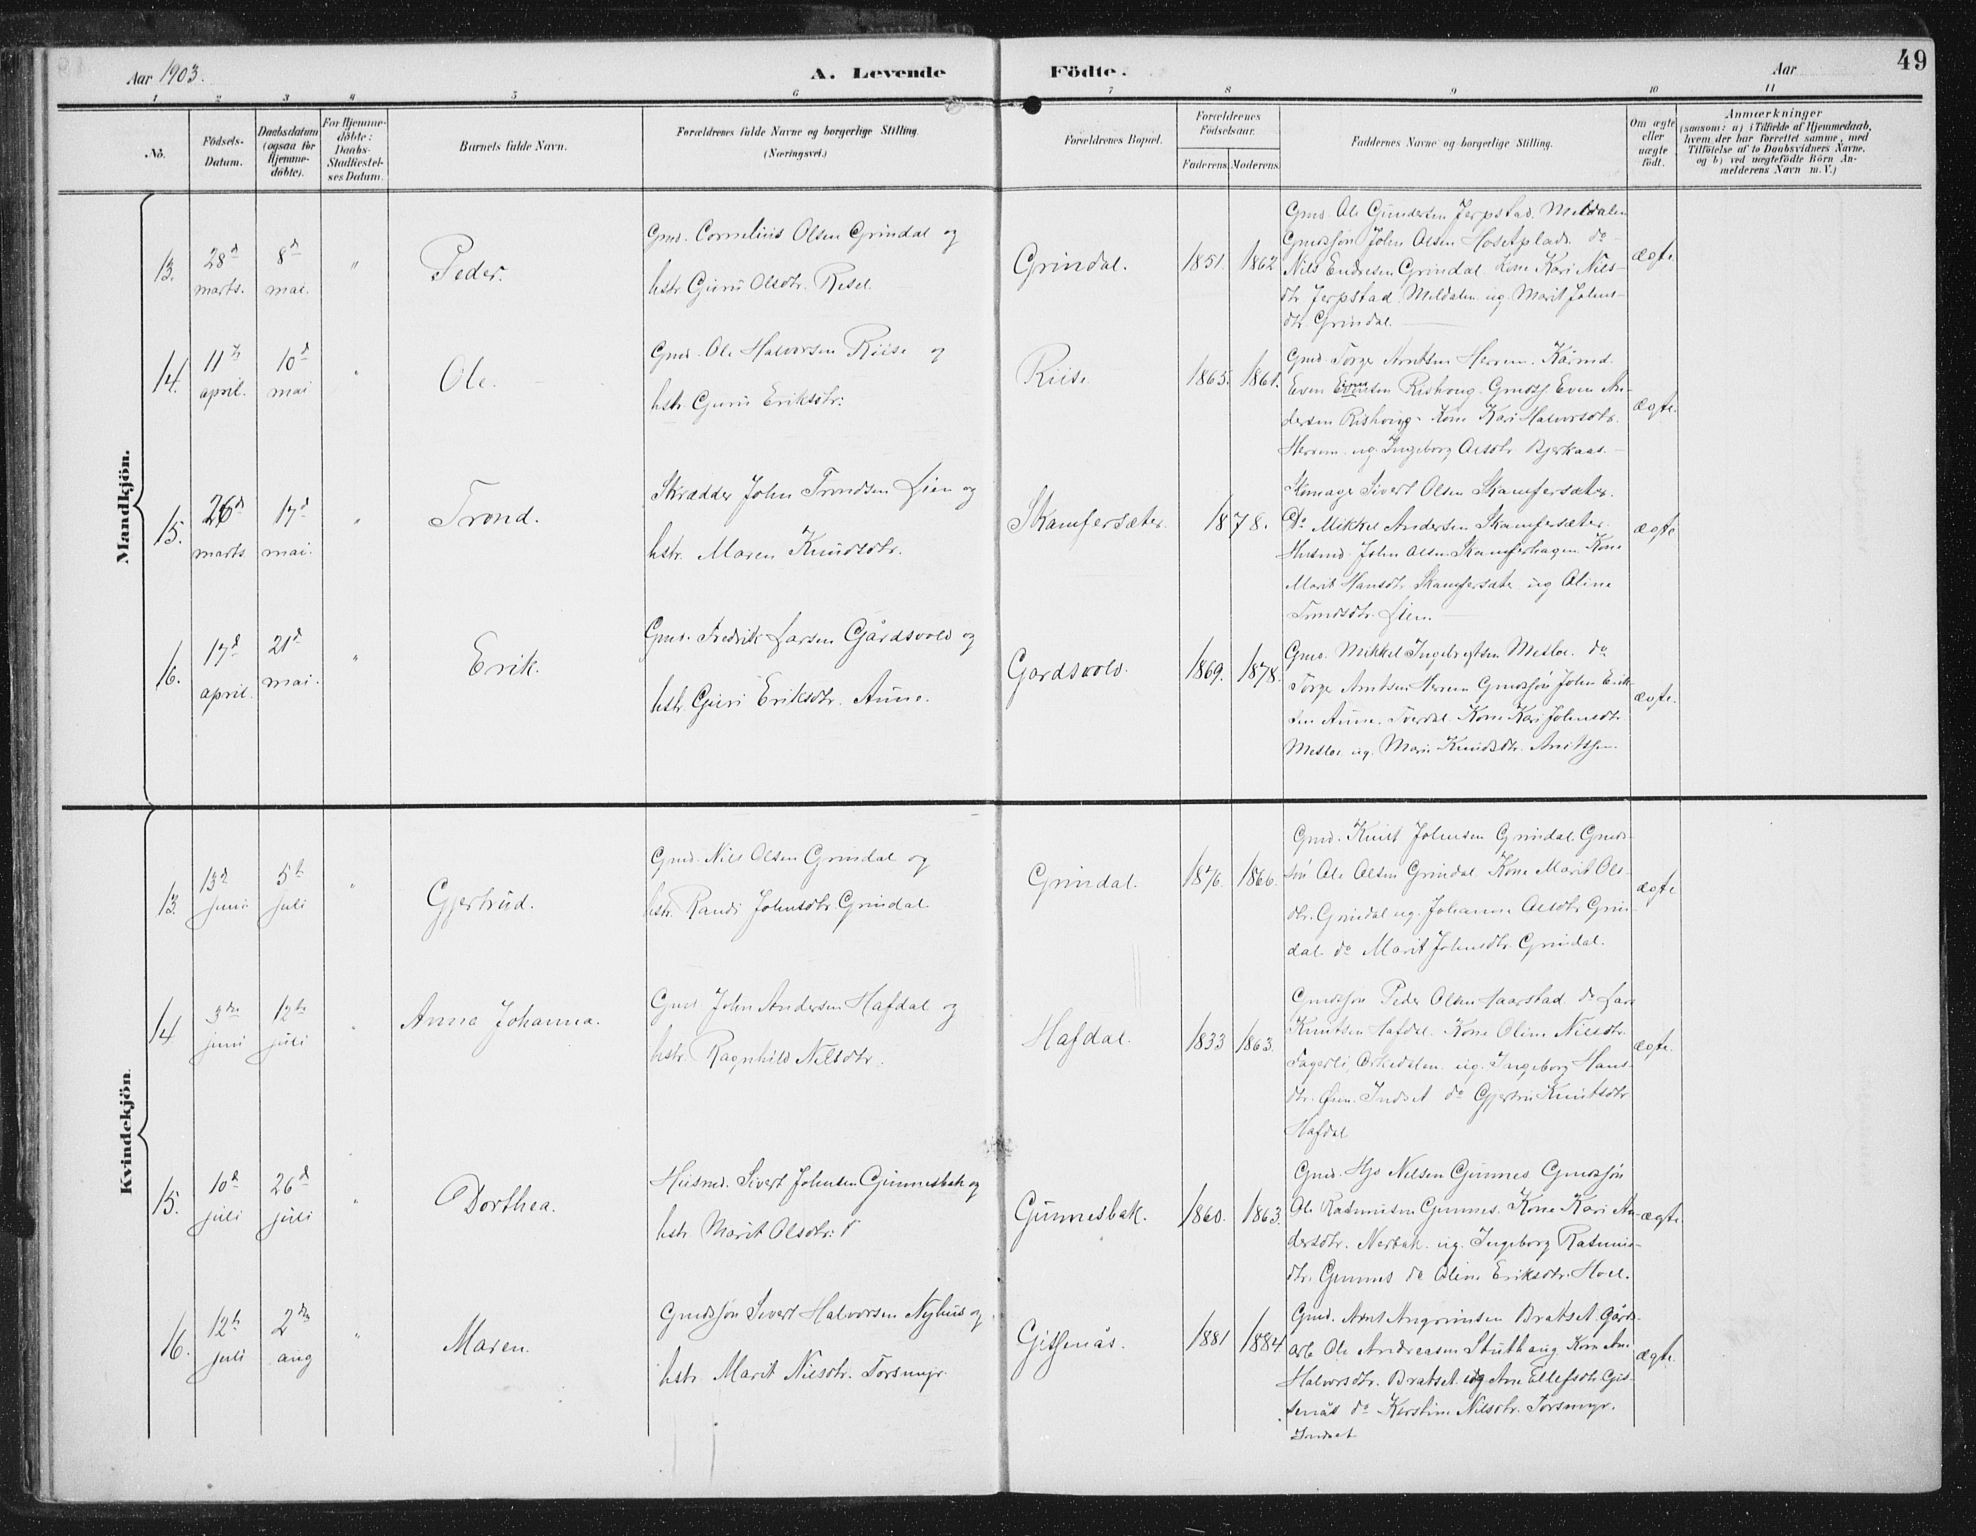 49
Aar 1903.
A. Levende
Födte.
Aar
1 2 3 4 5 6 7 8 9 10 11
No.
Födsels-
Datum.
Daabsdatum
(ogsaa for
Hjemme-
döbte).
For Hjemme-
döbte:
Daabs-
Stadfæstel-
ses Datum.
Barnets fulde Navn.
Forældrenes fulde Navne og borgerlige Stilling.
(Næringsvei.)
Forældrenes Bopæl.
Forældrenes
Födselsaar.
Faderens Moderens
Faddernes Navne og borgerlige Stilling.
Om ægte
eller
uægte
födt.
Anmærkninger
(saasom: a) i Tilfælde af Hjemmedaab,
hvem der har forrettet samme, med
Tilföielse af to Daabsvidners Navne,
og b) ved uægtefödte Börn An-
melderens Navn m. V.)
Mandkjön.
13. 28d marts. 8d mai. " Peder.
Gmd. Cornelius Olsen Grindal og
hstr Guru Olsdtr. Resel.
Grindal. 1851. 1862
Gmd. Ole Gundersen Jerpstad. Meldalen
Gmdsjøn John Olsen Hosetplads. do
Nils Endresen Grindal. Kone Kari Nils-
dtr Jerpstad. Meldalen ug. Marit Johns-
dtr. Grindal.
ægte
14. 11te april. 10d mai " Ole.
Gmd. Ole Halvorsen Riise og
hstr Guru Eriksdtr.
Riise 1865. 1861.
Gmd. Torge Arntsen Herrem.
Even Evensen Rishoug. Even An-
dersen Rishoug. Kone Kari Halvorsdtr.
Herrem ug. Ingeborg Olsdtr. Bjerkaas.
ægte.
15. 26d marts 17d mai. " Trond.
Skrædder John Trondsen Lien og
hstr. Maren Knudsdtr.
Skamfersæter. 1878.
Skomager Sivert Olsen Skamfersæter.
Do Mikkel Andersen Skamfersæter.
Husmd. John Olsen Skamferhagen. Kone
Marit Hansdtr Skamfersæter ug Oline
Trondsdtr. Lien.
ægte
16. 17d april. 21d mai. " Erik.
Gmd. Fredrik Larsen Gårdsvold og
hstr. Guri Eriksdtr. Aune.
Gardsvold. 1869. 1878.
Gmd. Mikkel Ingebrigtsen Mesloe. do
Torge Arntsen Herrem Gmdsjøn John Erik-
sen Aune. Kone Kari Johnsdtr.
Mesloe ug. Marie Knudsdtr.
ægte.
Kvindekjön.
13. 13d juni 5te juli " Gjertrud.
Gmd. Nils Olsen Grindal og
hstr. Randi Johnsdtr. Grindal
Grindal. 1876. 1866.
Gmd. Knut Johnsen Grindal. Gmds-
søn Ole Olsen Grindal. Kone Marit Ols-
dtr. Grindal ug. Johanna Olsdtr Grin-
dal do Marit Johnsdtr. Grindal.
ægte
14 3die juni 12te juli " Anna Johanna.
Gmd. John Andersen Hafdal og
hstr. Ragnhild Nilsdtr.
Hafdal. 1833 1863.
Gmdsjøn Peder Olsen Aarstad. do Lars
Knutsen Hafdal. Kone Oline Nilsdtr.
Fagerli, Orkedalen. ug. Ingeborg Hans-
dtr. Øien. Indset do Gjertru Knutsdtr
Hafdal
ægte.
15. 10d juli 26d juli " Dorthea.
Husmd. Sivert Johnsen Gunnesbak og
hstr Marit Olsdtr.
Gunnesbak. 1860. 1863.
Gmd. Nilsen Gunnes. Gmdsjøn
Ole Rasmusen Gunnes. Kone Kari An-
dersdtr. Nerbak. ug. Ingeborg Rasmus-
dtr. Gunnes do Oline Eriksdtr. Hoel.
ægte.
16. 12te juli 2den aug " Maren.
Gmdsjøn Sivert Halvorsen Nyhus og
hstr Marit Nilsdtr. Torsmyr.
Gisnås. 1881 1884
Gmd. Arnt Arngrimsen Bratset. Gårds-
arb Ole Andreasen Stuthaug Kone Ane
Halvorsdtr. Bratset ug Ane Ellefsdtr. Gis-
senås do Kerstine Nilsdtr. Torsmyr.
Indset
ægte.